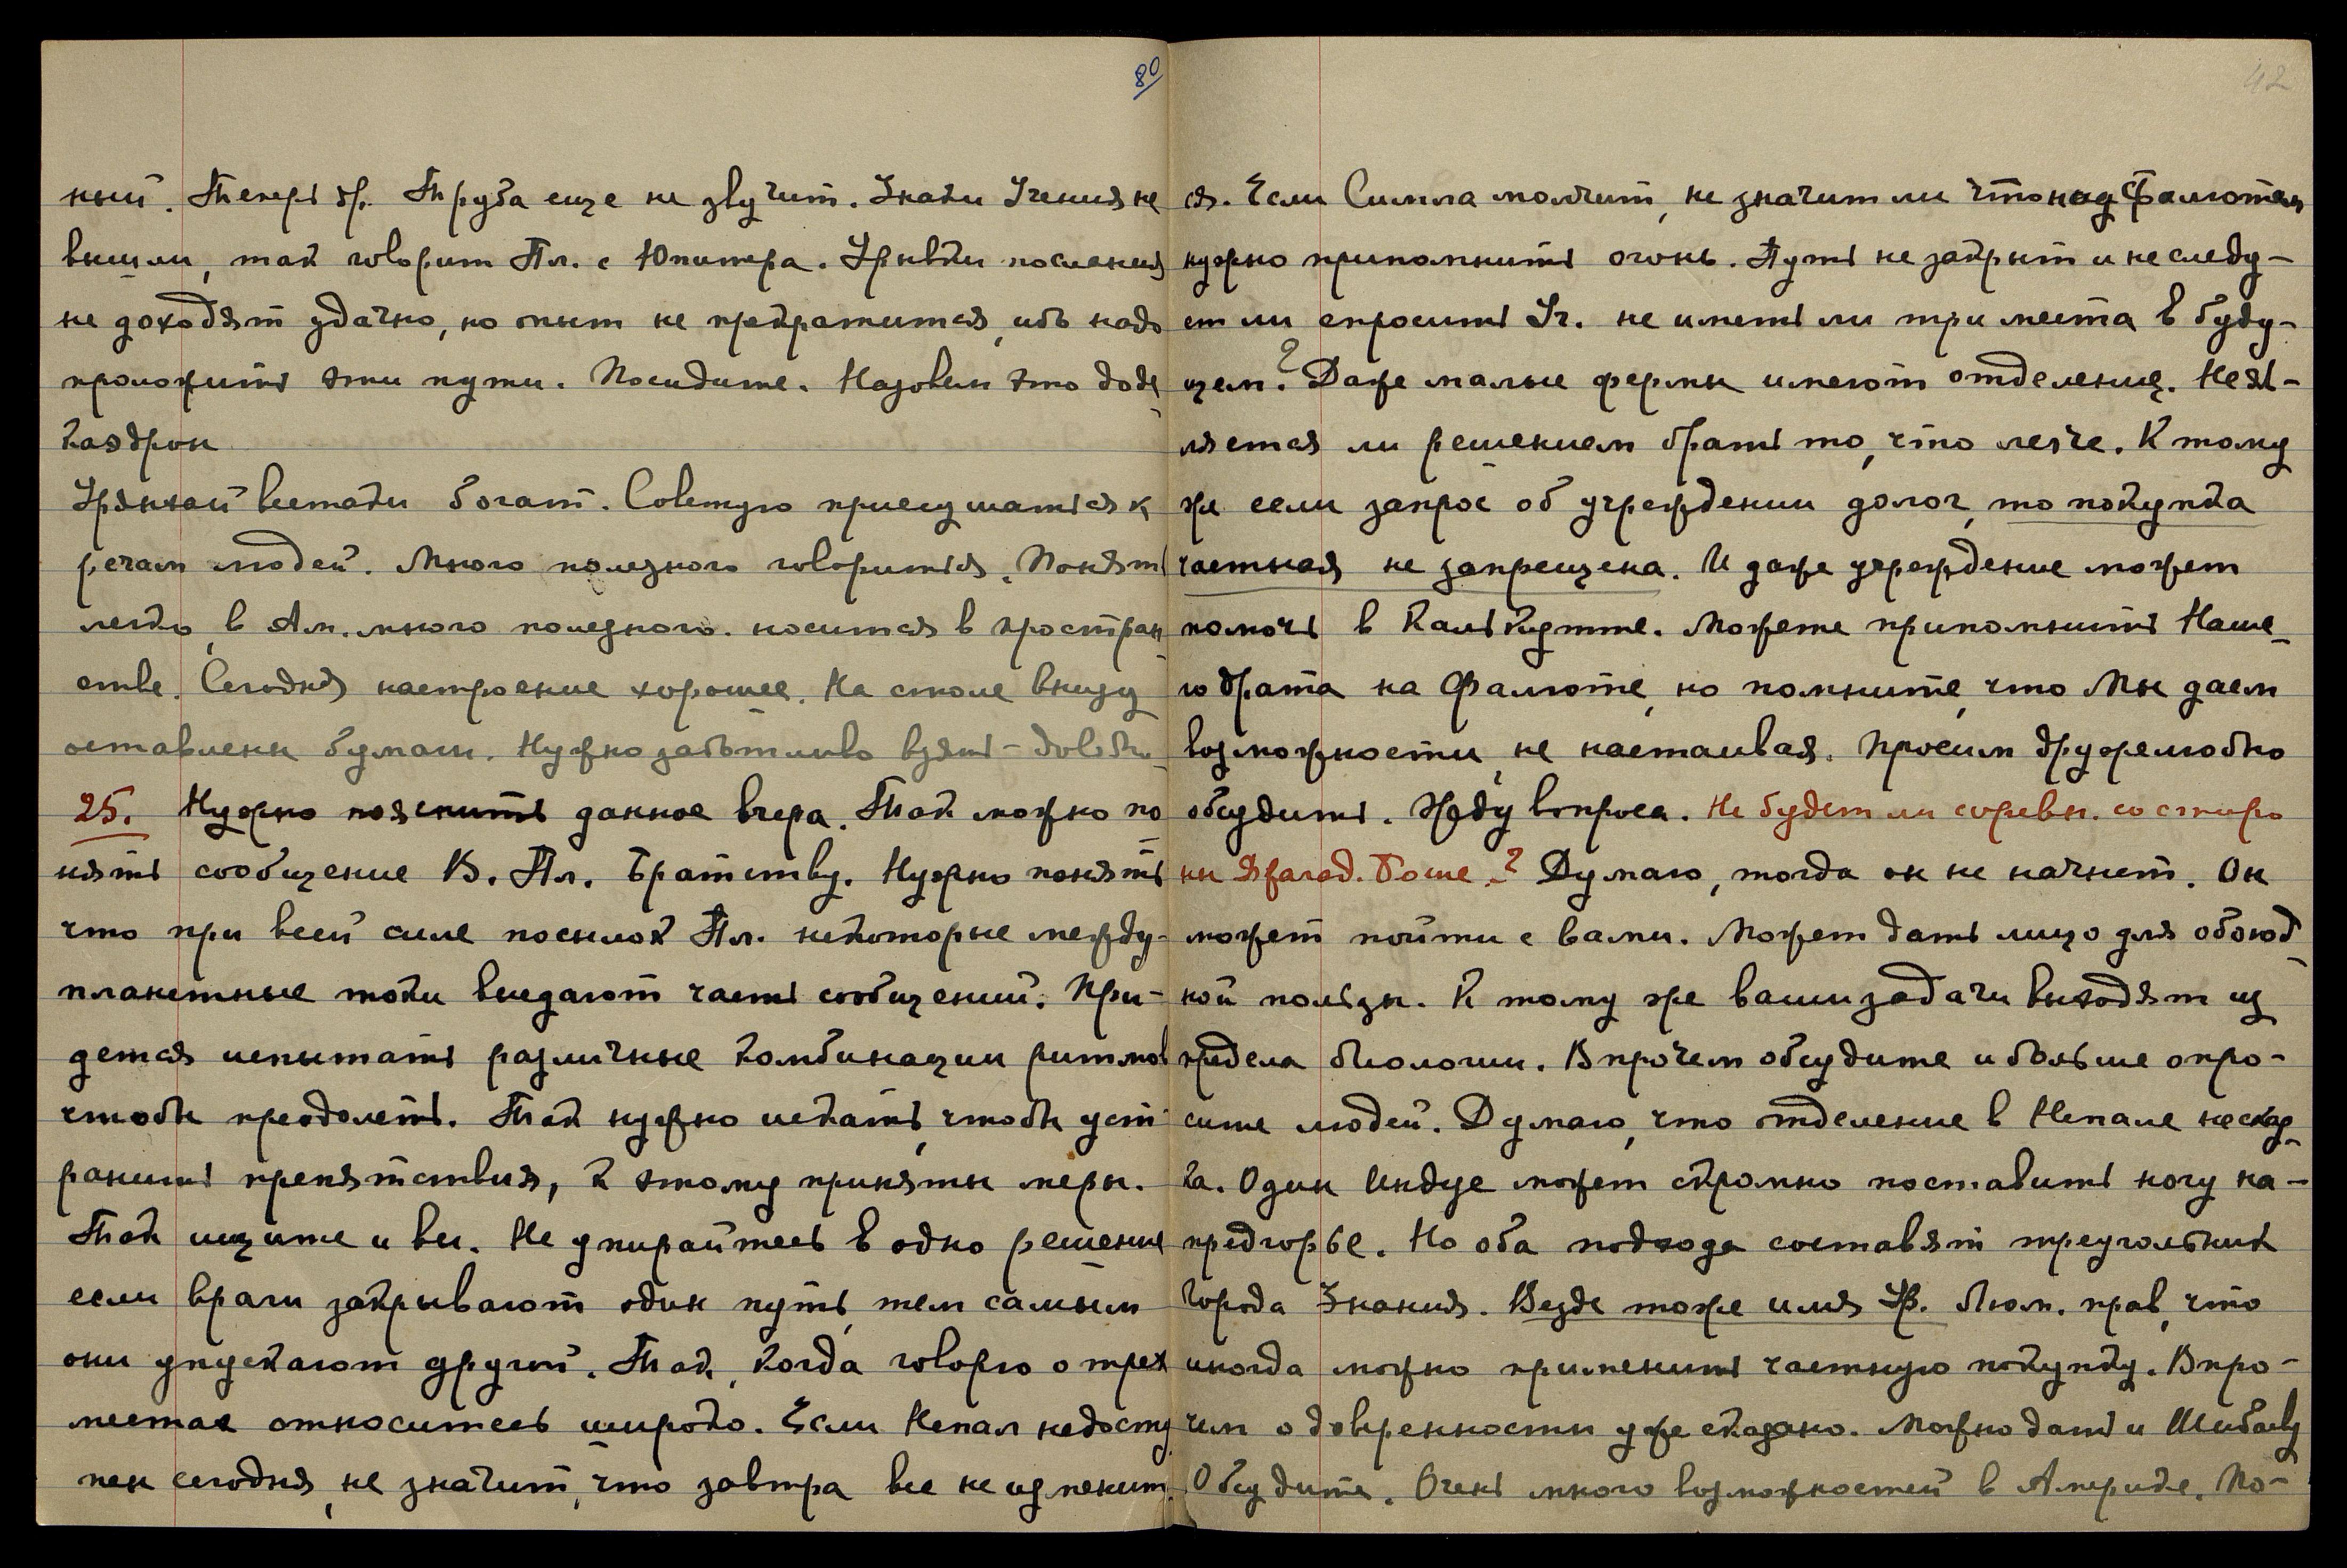 80
ный. Теперь др. Труба еще не звучит. Знаки Учения не
вышли, так говорит Пл. с Юпитера. Урывки послания
не доходят удачно, но опыт не прекратится, ибо надо
проложить эти пути. Посидите. Назовем это доде-
каэдрон
Урянхай всетаки богат. Советую прислушаться к
речам людей. Много полезного говорится. Понять
легко, в Ам. много полезного носится в простран-
стве. Сегодня настроение хорошее. На столе внизу
оставлены бумаги. Нужно заботливо взять – довольно
25. Нужно пояснить данное вчера. Так можно по-
нять сообщение В. Пл. Братству. Нужно понять
что при всей силе посылок Пл. некоторые между-
планетные токи въедают часть сообщений. При-
дется испытать различные комбинации ритмов
чтобы преодолеть. Так нужно искать, чтобы уст-
ранить препятствия, к этому приняты меры.
Так ищите и вы. Не упирайтесь в одно решение
если враги закрывают один путь, тем самым
они упускают другой. Так, когда говорю о трех
местах относитесь широко. Если Непал недосту-
пен сегодня, не значит, что завтра все не изменит-
42
ся. Если Симла молчит, не значит ли что над Фалютом
нужно припомнить огонь. Путь не закрыт и не следу-
ет ли спросить Уч. не иметь ли три места в буду-
щем? Даже малые фермы имеют отделения. Не яв-
ляется ли решением брать то, что легче. К тому
же если запрос об учреждении долог, то покупка
частная не запрещена. И даже учреждение может
помочь в Калькутте. Можете припомнить Наше-
го брата на Фалюте, но помните, что Мы даем
возможности, не настаивая. Просим дружелюбно
обсудить. Жду вопроса. Не будет ли соревн. со сторо
ны Bose.? Думаю, тогда он не начнет. Он
может пойти с вами. Может дать лицо для обоюд-
ной пользы. К тому же ваши задачи выходят из
предела биологии. Впрочем обсудите и больше опро-
сите людей. Думаю, что отделение в Непале не сказ-
ка. Один Индус может скромно поставить ногу на-
предгорье. Но оба подхода составят треугольник
Города Знания. Везде тоже имя Ур. Люм. прав, что
иногда можно применить частную покупку. Впро-
чем о доверенности уже сказано. Можно дать и Шибаеву
Обсудите. Очень много возможностей в Америке. По-